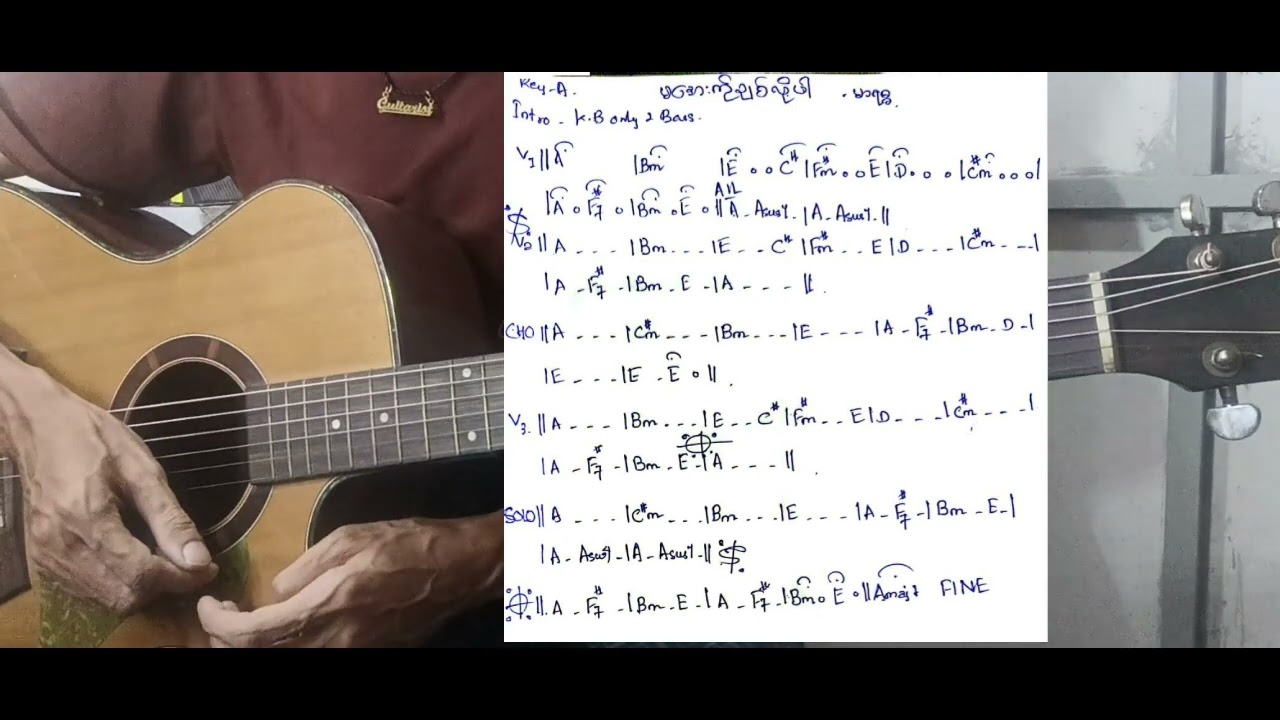 Guitarist
Key-A. မအေးကိုညစ်လို့ပါ . မာရဇ္ဇ.
Intro - K.B only 2 Bars.
V1 || A | Bm | E o o C# | F#m o o E | D o o o | C#m o o o |
| A o F#7 o | Bm o E o || ALL A - Asus4 - | A - Asus4 - ||
V2 || A - - - | Bm - - - | E - - C# | F#m - - E | D - - - | C#m - - - |
| A - F#7 - | Bm - E - | A - - - || .
CHO || A - - - | C#m - - - | Bm - - - | E - - - | A - F#7 - | Bm - D - |
| E - - - | E - E o || .
V3. || A - - - | Bm - - - | E - - C# | F#m - - E | D - - - | C#m - - - |
| A - F#7 - | Bm - E - | A - - - || .
SOLO || A - - - | C#m - - - | Bm - - - | E - - - | A - F#7 - | Bm - E - |
| A - Asus4 - | A - Asus4 - ||
||. A - F#7 - | Bm - E - | A - F#7 - | Bm o E o || Amaj7 FINE